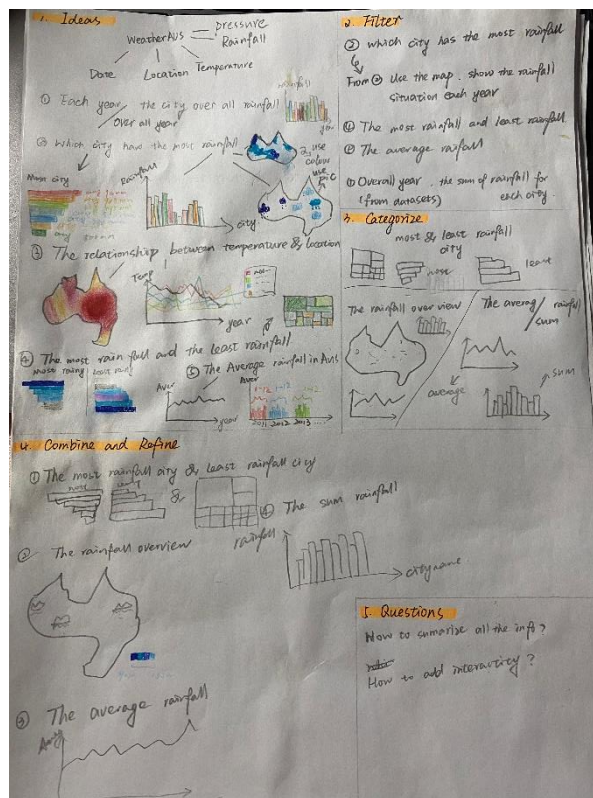 1. Ideas
WeatherAUS
pressure
Rainfall
Date
Location
Temperature
① Each year / the city over all rainfall
over all year
rainfall
year
② which city have the most rainfall
use
colour
use
pic
Rainfall
city
③ The relationship between temperature & location
Temp
year
④ The most rainfall and the least rainfall
⑤ The Average rainfall in Aus
Aver
year
Aver
1-12
2011 2012 2013 ....
2. Filter
② which city has the most rainfall
From ② Use the map. show the rainfall
situation each year
④ The most rainfall and least rainfall
⑤ The average rainfall
① Overall year. the sum of rainfall for
(from datasets) each city.
3. Categorize
most & least rainfall
city
most
least
The rainfall over view
The average / rainfall
sum
average
sum
4. Combine and Refine
① The most rainfall city & least rainfall city
most
&
② The rainfall overview
④ The sum rainfall
rainfall
cityname
③ The average rainfall
5. Questions
How to sumarize all the info?
How to add interactivity?